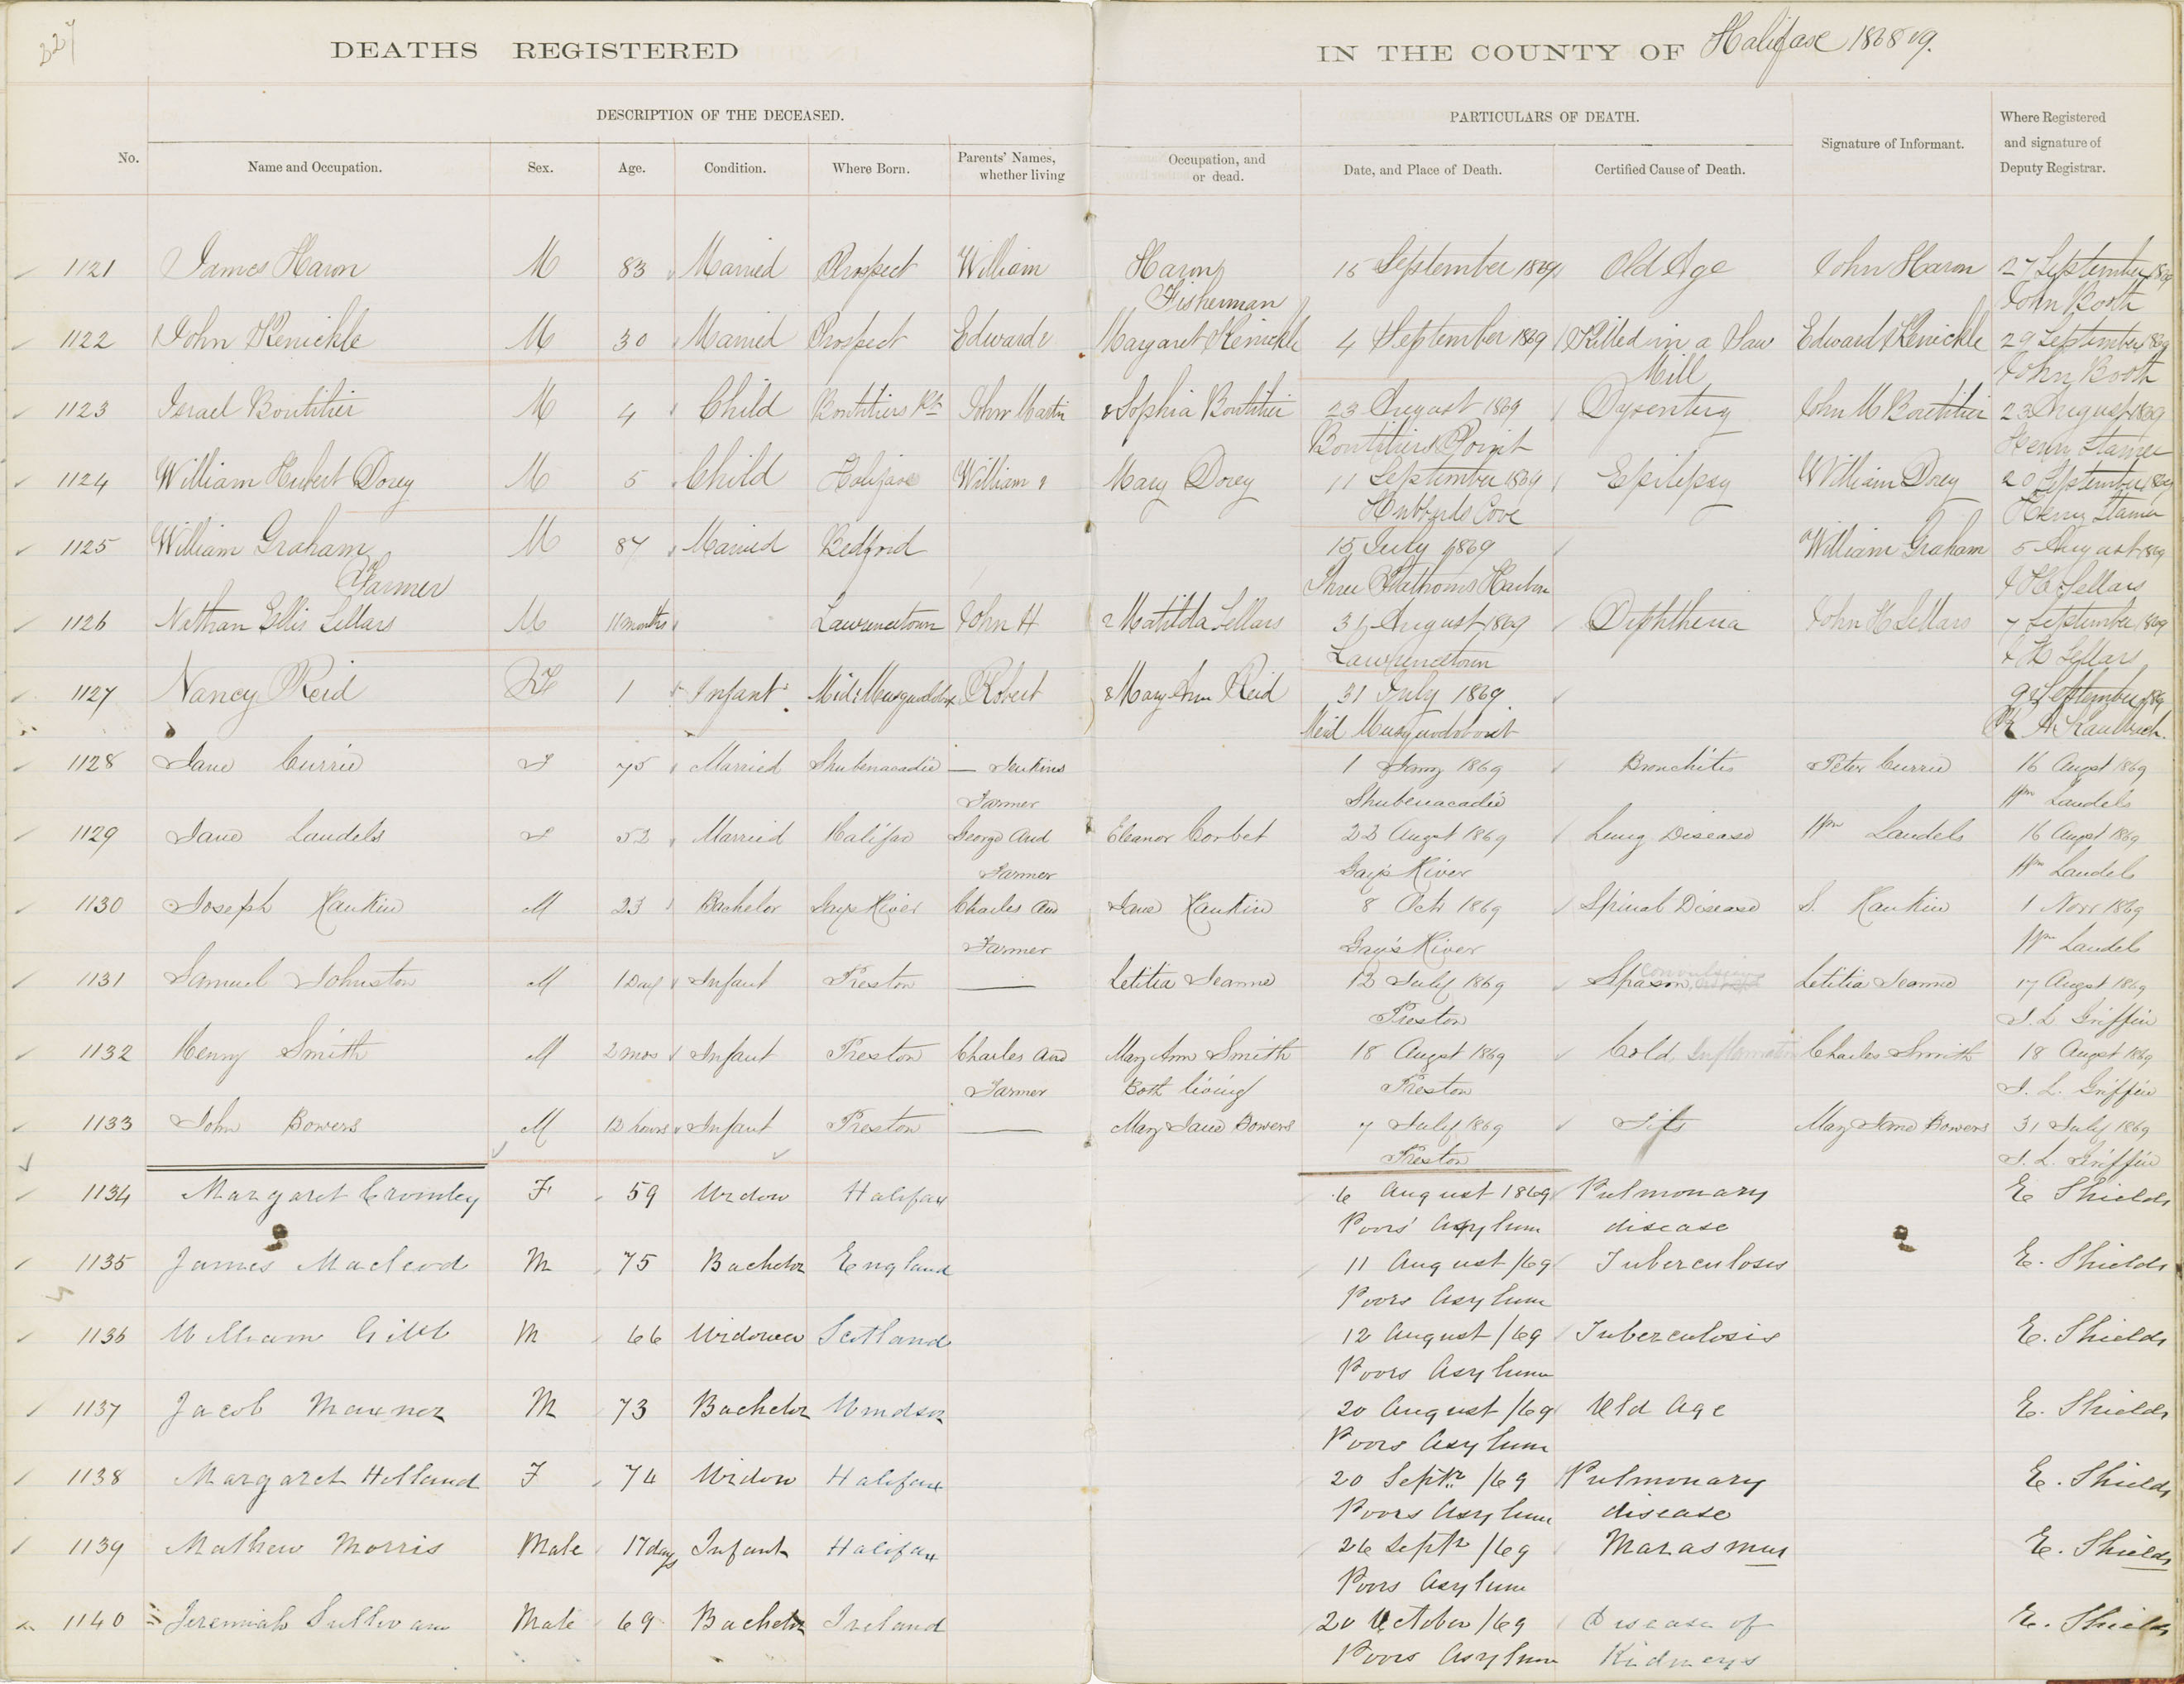 327
DEATHS REGISTERED IN THE COUNTY OF Halifax 1868 & 9.
DESCRIPTION OF THE DECEASED. PARTICULARS OF DEATH.
No. Name and Occupation. Sex. Age. Condition. Where Born. Parents' Names, whether living Occupation, and or dead. Date, and Place of Death. Certified Cause of Death. Signature of Informant. Where Registered and signature of Deputy Registrar.
1121 James Haron M 83 Married Prospect William Haron 15 September 1869 Old Age John Haron 27 September 1869
Fisherman John Booth
1122 John Kenickle M 30 Married Prospect Edward & Margaret Kenickle 4 September 1869 Killed in a Saw Edward Kenickle 29 September 1869
Mill John Booth
1123 Israel Boutitier M 4 Child Boutitiers Pt John Martin & Sophia Boutitier 23 August 1869 Dysentery John M Boutitier 23 August 1869
Boutitiers Point Henry Stamer
1124 William Hubert Dorey M 5 Child Halifax William & Mary Dorey 11 September 1869 Epilipsy William Dorey 20 September 1869
Hubbards Cove Henry Stamer
1125 William Graham M 87 Married Bedford 15 July 1869 William Graham 5 August 1869
Farmer Three Fathoms Harbour J H Sellars
1126 Nathan Ellis Sellars M 11 months Lawrencetown John H & Matilda Sellars 31 August 1869 Diphtheria John H Sellars 7 September 1869
Lawrencetown J H Sellars
1127 Nancy Reid F 1 Infant Mid Musquodoboit Robert & Mary Ann Reid 31 July 1869 9 September 1869
Mid Musquodoboit R A Kaulbach.
1128 Jane Currie F 75 Married Shubenacadie — Jenkins 1 Jany 1869 Bronchitis Peter Currie 16 Augst 1869
Farmer Shubenacadie Wm Landels
1129 Jane Landels F 52 Married Halifax George and Eleanor Corbet 22 Augst 1869 Lung Disease Wm Landels 16 Augst 1869
Farmer Gay's River Wm Landels
1130 Joseph Hankin M 23 Bachelor Gays River Charles and Jane Hankin 8 Oct 1869 Spinal Disease S. Hankin 1 Novr 1869
Farmer Gay's River Wm Landels
1131 Samuel Johnston M 1 Day Infant Preston — Letitia Jeanne 12 July 1869 Spasm, convulsions Letitia Jeanne 17 Augst 1869
Preston J. L Griffin
1132 Henry Smith M 2 mos Infant Preston Charles and Mary Ann Smith 18 Augst 1869 Cold, Inflamation Charles Smith 18 Augst 1869
Farmer Both living Preston J. L. Griffin
1133 John Bowers M 12 hours Infant Preston — Mary Jane Bowers 7 July 1869 Fits Mary Jane Bowers 31 July 1869
Preston J. L. Griffin
1134 Margaret Cromley F 59 Widow Halifax 6 August 1869 Pulmonary E Shields
Poors' Asylum disease
1135 James Macleod M 75 Bachelor England 11 August /69 Tuberculosis E. Shields
Poors Asylum
1136 William Gibb M 66 Widower Scotland 12 August /69 Tuberculosis E. Shields
Poors Asylum
1137 Jacob Maxner M 73 Bachelor Windsor 20 August /69 Old Age E. Shields
Poors Asylum
1138 Margaret Holland F 74 Widow Halifax 20 Septr /69 Pulmonary E. Shields
Poors Asylum disease
1139 Mathew Morris Male 17 days Infant Halifax 26 Septr /69 Marasmus E. Shields
Poors Asylum
1140 Jeremiah Sullivan Male 69 Bachelor Ireland 20 October /69 Disease of E. Shields
Poors Asylum Kidneys